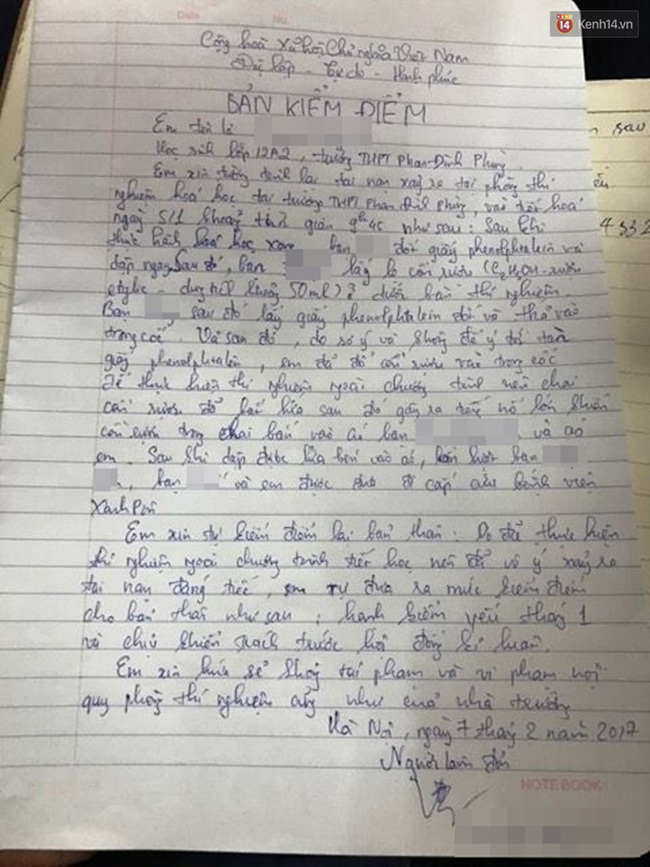 Kenh14.vn
Date No
Cộng hoà Xã hội Chủ nghĩa Việt Nam
Độc lập - Tự do - Hạnh phúc
BẢN KIỂM ĐIỂM
Em tên là
Học sinh lớp 12A2, trường THPT Phan Đình Phùng
Em xin tường trình lại tai nạn xảy ra tại phòng thí
nghiệm hoá học tại trường THPT Phan Đình Phùng, vào tiết hoá
ngày 5/1 khoảng thời gian 9h45 như sau: Sau khi
thực hành hoá học xong, bạn đốt giấy phenolphtalein và
dập ngay sau đó, bạn lấy lọ cồn rượu (C2H5OH - rượu
etylic - dung tích khoảng 50ml) ở dưới bàn thí nghiệm
Bạn sau đó lấy giấy phenolphtalein đốt và thả vào
trong cốc. Và sau đó, do sơ ý và không để ý tới tàn
giấy phenolphtalein, em đã đổ cồn rượu vào trong cốc
để thực hiện thí nghiệm ngoài chương trình nên chai
cồn rượu đã bắt lửa sau đó gây ra tiếng nổ lớn khiến
cồn rượu trong chai bắn vào áo bạn và áo
em. Sau khi dập được lửa bén vào áo, lần lượt bạn
bạn và em được đưa đi cấp cứu bệnh viện
Xanh Pôn
Em xin tự kiểm điểm lại bản thân: Do đã thực hiện
thí nghiệm ngoài chương trình tiết học nên đã vô ý xảy ra
tai nạn đáng tiếc, em tự đưa ra mức kiểm điểm
cho bản thân như sau: hạnh kiểm yếu tháng 1
và chịu khiển trách trước hội đồng kỉ luật.
Em xin hứa sẽ không tái phạm và vi phạm nội
quy phòng thí nghiệm cũng như của nhà trường
Hà Nội, ngày 7 tháng 2 năm 2017
Người làm đơn
NOTEBOOK
sau
4332